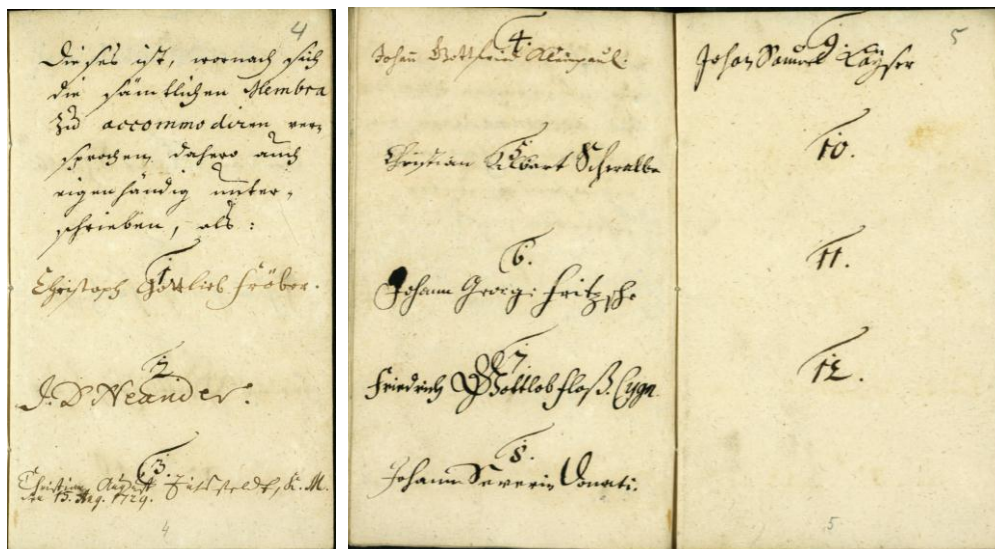 4
Dieses ist, wornach sich
die sämtlichen Membra
zu accommodiren ver-
sprochen, dahero auch
eigenhändig unter-
schrieben, als:
1.
Christoph Gottlieb Fröber.
2.
J. D. Neander.
3.
Christian August
den 15. Aug. 1729.
4
4.
Johann Gottfried Kleinpaul.
5.
Christian Albert Schwalbe
6.
Johann Georg: Fritzsche
7.
Friedrich Gottlob Floß. Cygn.
8.
Johann Severin Donati.
5
9.
Johan Samuel Kayser
10.
11.
12.
5